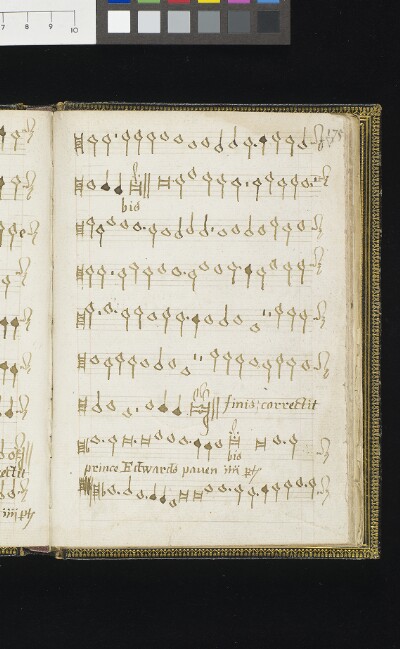 7 8 9 10
175
bis
finis: correctit
bis
prince Edwards paven iiii pts